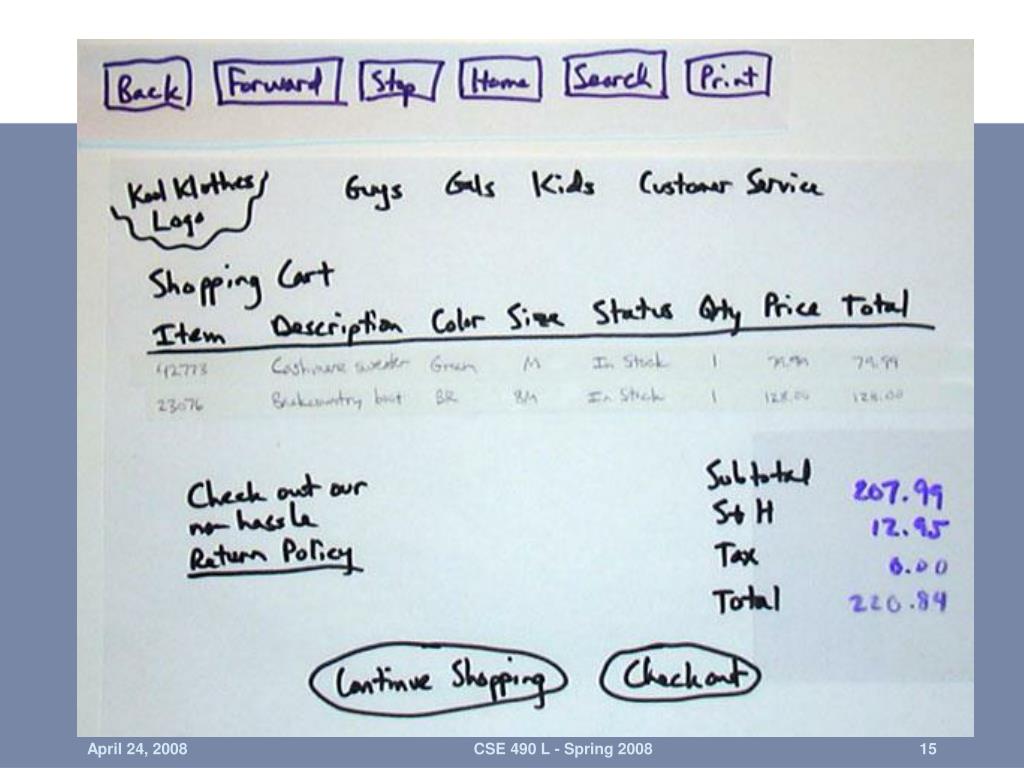 Back Forward Stop Home Search Print
Kool Klothes
Logo
Guys Gals Kids Customer Service
Shopping Cart
Item Description Color Size Status Qty Price Total
42773 Cashmere sweater Green M In Stock 1 79.99 79.99
23076 Backcountry boot BR 8M In Stock 1 128.00 128.00
Check out our
no hassle
Return Policy
Subtotal 207.99
S+H 12.95
Tax 0.00
Total 220.94
Continue Shopping Checkout
April 24, 2008 CSE 490 L - Spring 2008 15